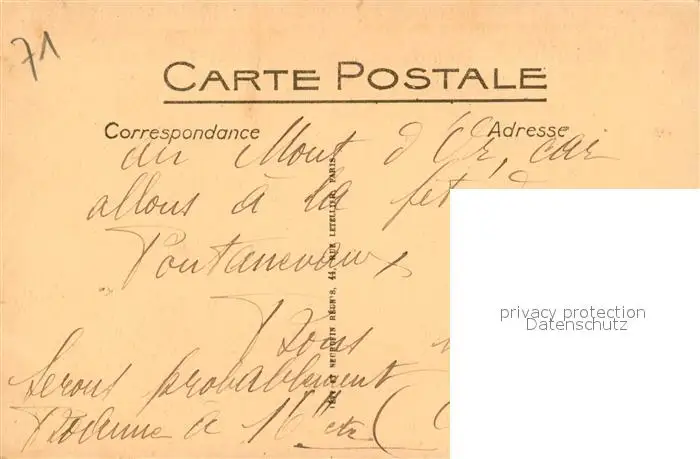 71
CARTE POSTALE
Correspondance
Adresse
au Mont d'Or, car
allons à la fêt
Pontanevaux
Nous
serons probablement
à 1
44, RUE LETELLIER, PARIS
privacy protection
Datenschutz